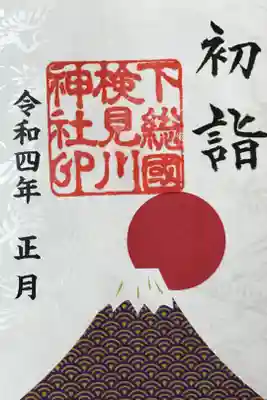 初詣
下総國
検見川
神社印
令和四年 正月